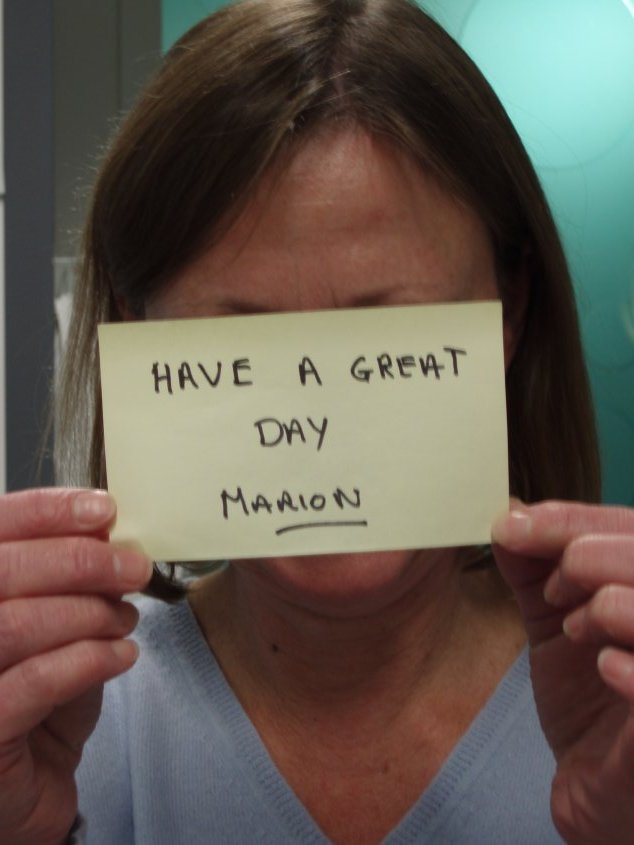 HAVE A GREAT
DAY
MARION